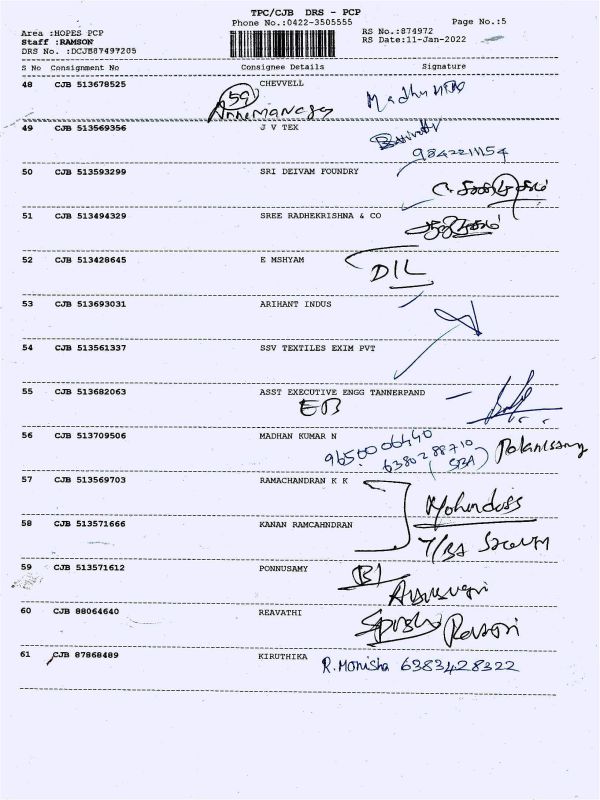 TPC/CJB DRS - PCP
Phone No.:0422-3505555 Page No.:5
Area :HOPES PCP RS No.:874972
Staff :RAMSON RS Date:11-Jan-2022
DRS No. :DCJB87497205
S No Consignment No Consignee Details Signature
48 CJB 513678525 CHEVVELL
59
49 CJB 513569356 J V TEX
9842211154
50 CJB 513593299 SRI DEIVAM FOUNDRY
51 CJB 513494329 SREE RADHEKRISHNA & CO
52 CJB 513428645 E MSHYAM
DIL
53 CJB 513693031 ARIHANT INDUS
54 CJB 513561337 SSV TEXTILES EXIM PVT
55 CJB 513682063 ASST EXECUTIVE ENGG TANNERPAND
EB
56 CJB 513709506 MADHAN KUMAR N
9650006440
6380288710
57 CJB 513569703 RAMACHANDRAN K K
Mohandoss
58 CJB 513571666 KANAN RAMCAHNDRAN
59 CJB 513571612 PONNUSAMY
60 CJB 88064640 REAVATHI
61 CJB 87868489 KIRUTHIKA R.Monisha 6383428322